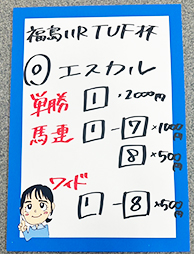 福島11R TUF杯
◎ エスカル
単勝 1 ・2000円
馬連 1 - 7 ×1000円
8 ×500円
ワイド
1 - 8 ×500円